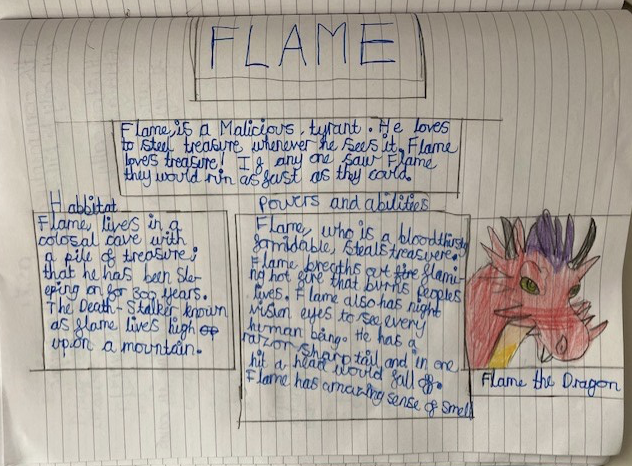 FLAME
Flame, is a Malicious, tyrant. He loves
to steel treasure whenever he sees it. Flame
loves treasure! If any one saw Flame
they would run as fast as they could.
Habbitat
Flame, lives in a
colosal cave with
a pile of treasure;
that he has been sle-
eping on for 300 years.
The Death-Stalker known
as flame lives high
upon a mountain.
Powers and abilities
Flame, who is a bloodthirsty
formidable, steals treasure.
Flame breaths out fire flami-
ng hot fire that burns peoples
lives. Flame also has night
vision eyes to see every
human being. He has a
razor sharp tail and in one
hit a head would fall off.
Flame has amazing sense of smell
Flame the Dragon